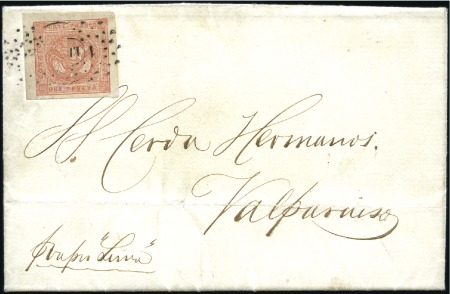 UNA PESETA
S.S. Cerda Hermanos.
Valparaiso
"Lima"